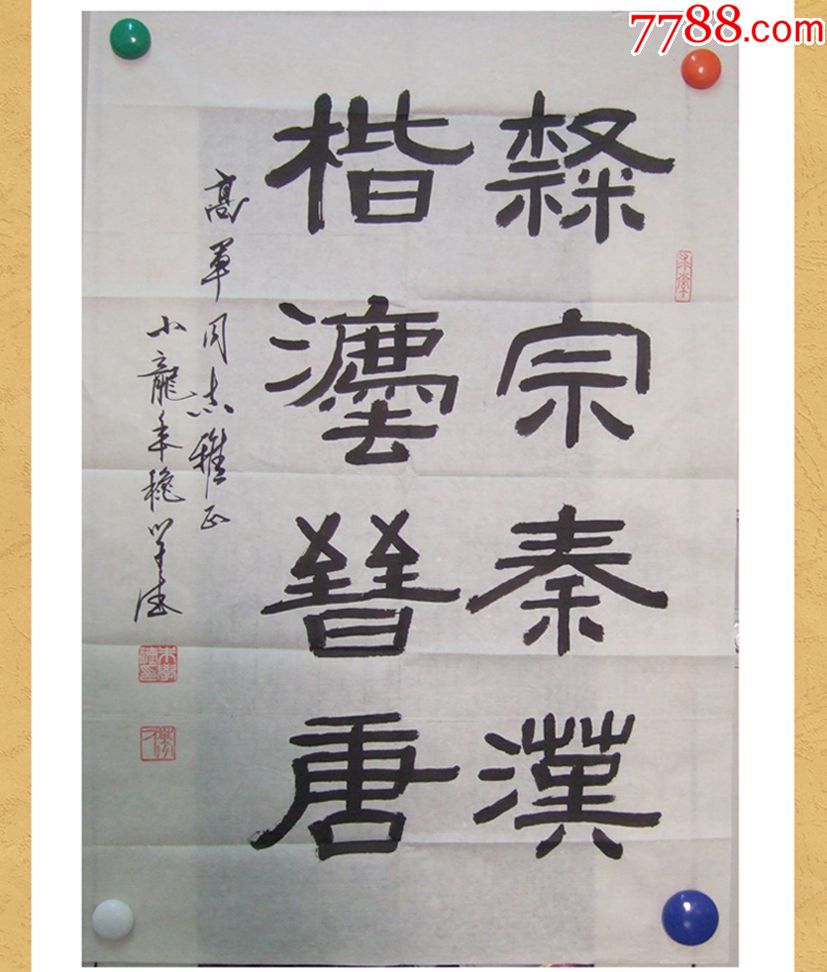 7788.com
隸宗秦漢
楷灋晉唐
高軍同志雅正
小龍年穐學